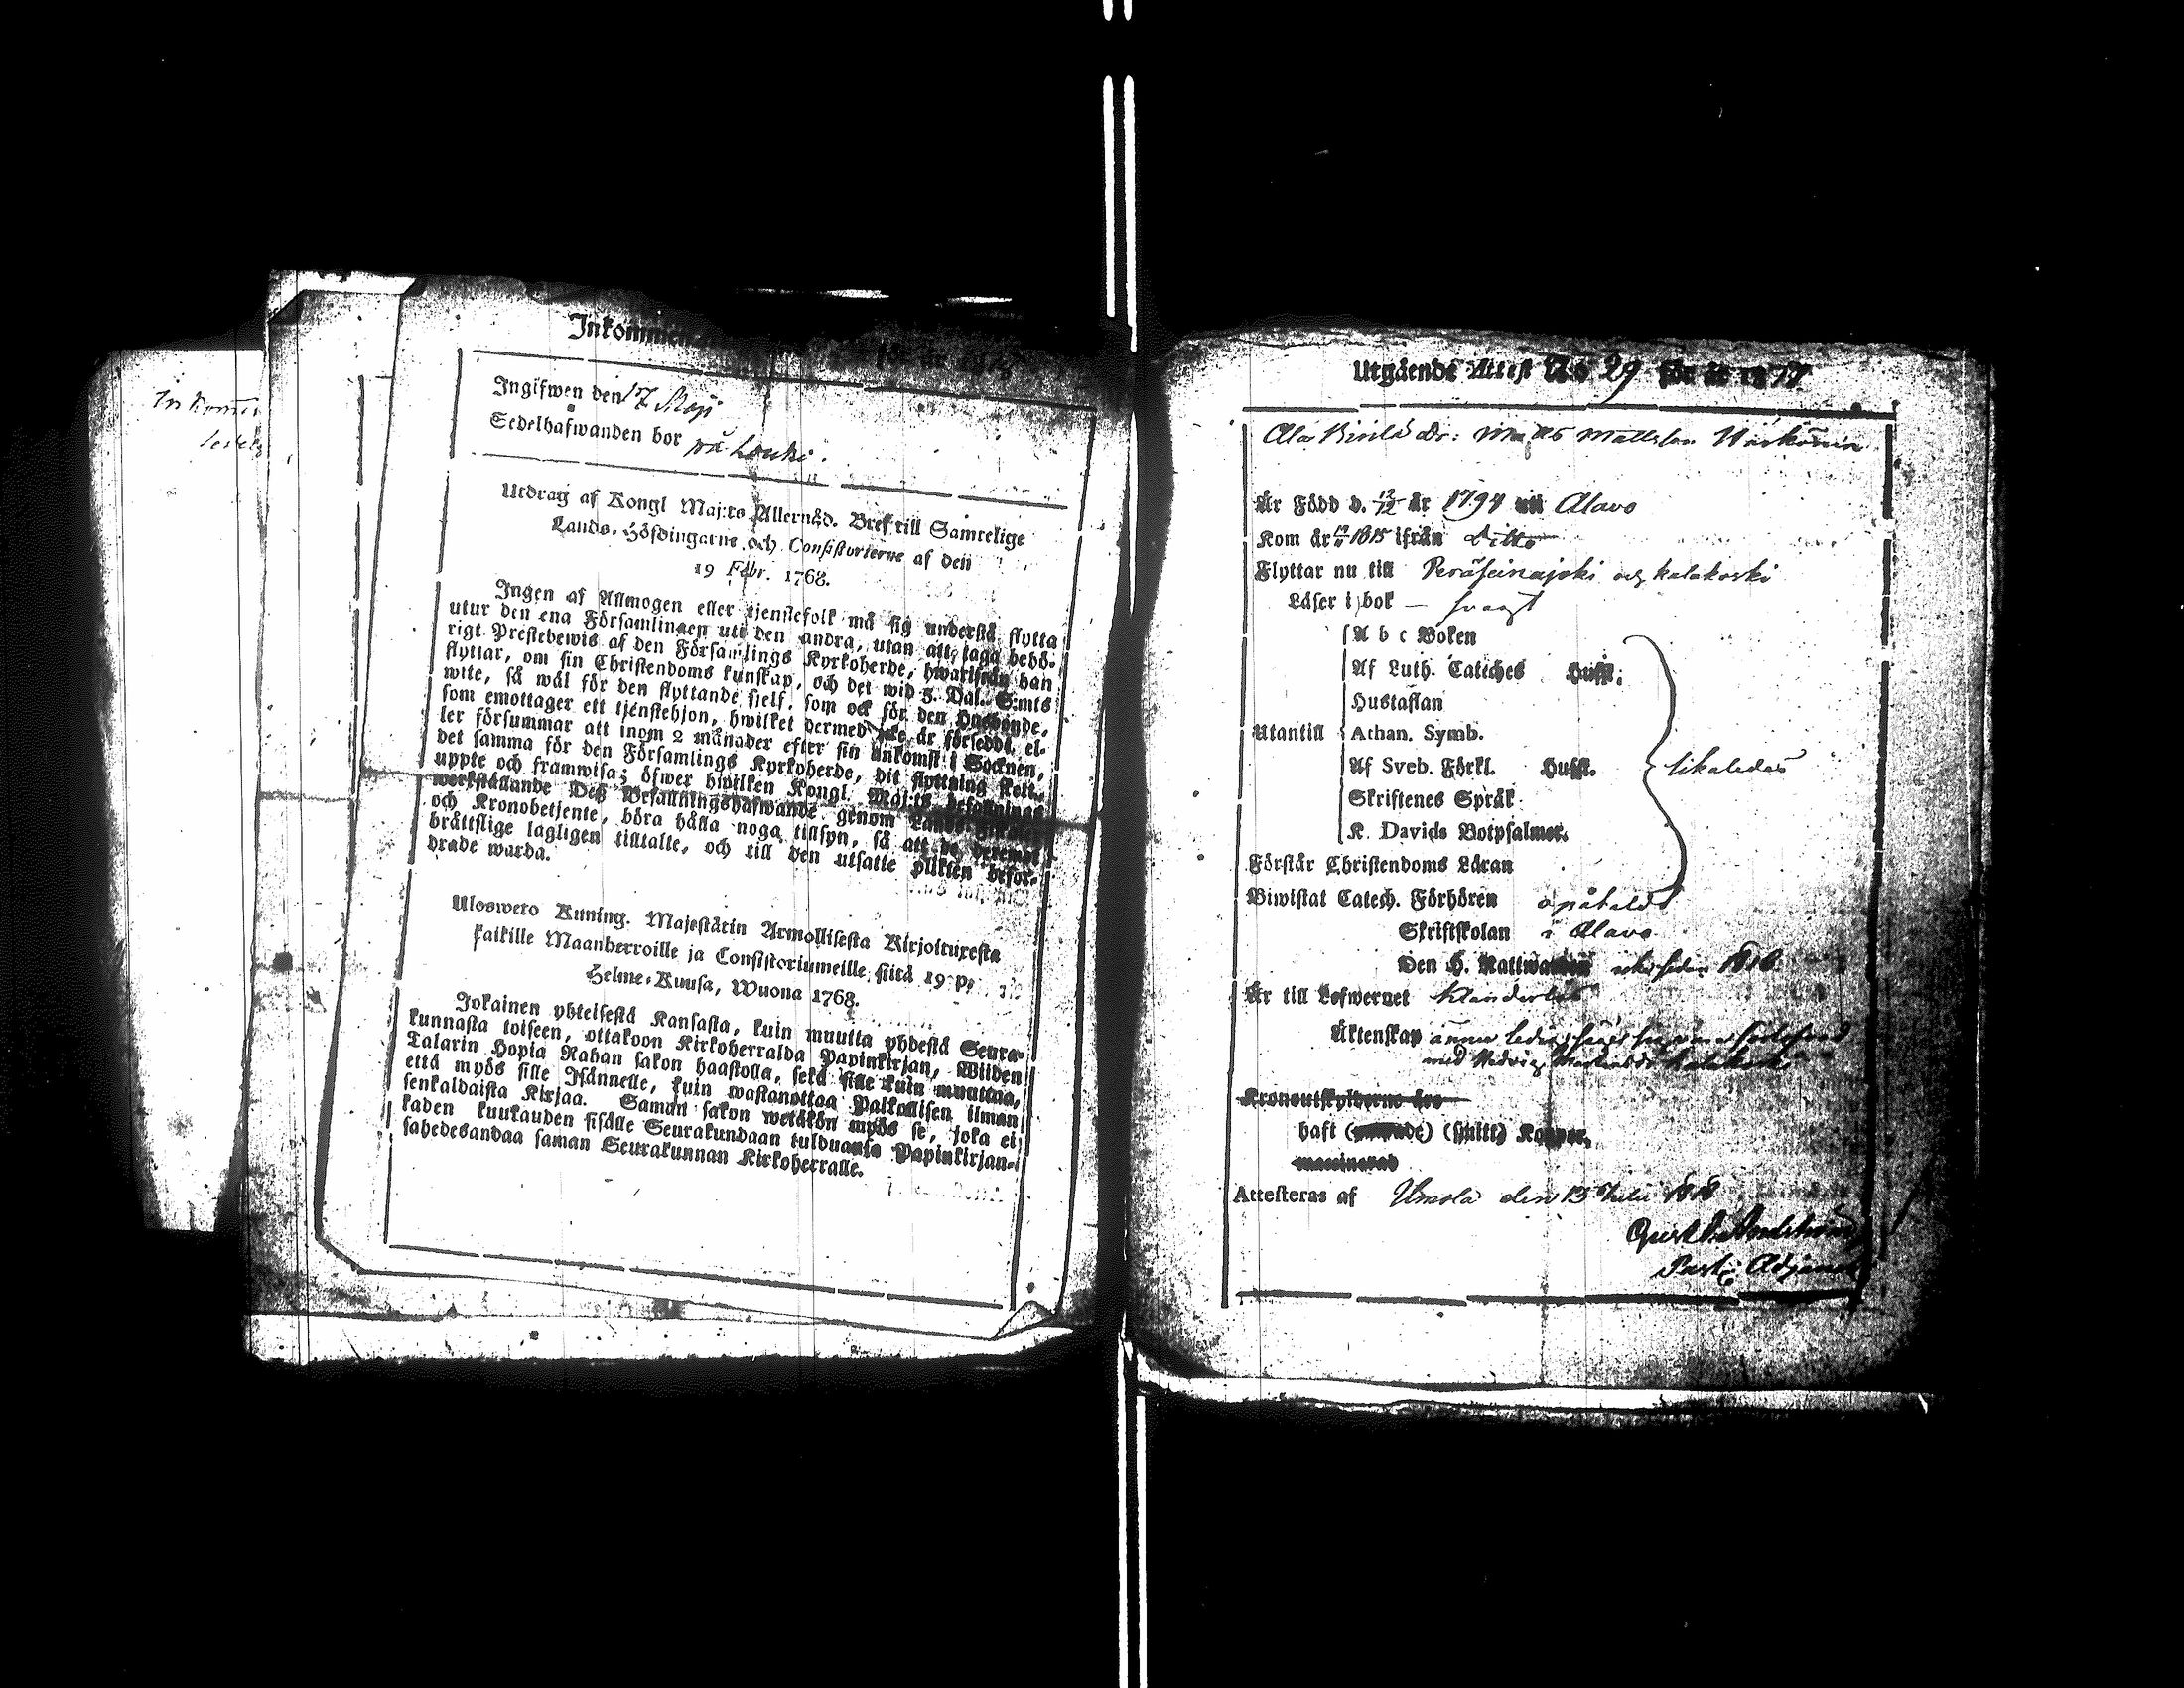 Inkommen
för år 18
Ingifwen den 17 Maji
Sedelhafwanden bor på Louko.
Utdrag af Kongl Maj:ts Allernåd. Bref till Samtelige
Lands-Höfdingarne och Consistorierne af den
19 Febr. 1768.
Ingen af Allmogen eller tjenstefolk må sig understå flytta
utur den ena Församlingen uti den andra, utan att taga behö-
rigt Prestebewis af den Församlings Kyrkoherde, hwarifrån han
flyttar, om sin Christendoms kunskap, och det wid 5 Dal. S:mts
wite, så wäl för den flyttande sjelf, som ock för den Husbonde,
som emottager ett tjenstehjon, hwilket dermed icke är försedd, el-
ler försummar att inom 2 månader efter sin ankomst i Socknen,
det samma för den Församlings Kyrkoherde, dit flyttning skett,
uppte och framwisa; öfwer hwilken Kongl. Maj:ts befallnings
werkställande Deß Befallningshafwande genom Lands-Fiskaler
och Kronobetjente, böra hålla noga tillsyn, så att de deremot
bråttslige lagligen tilltalte, och till den utsatte plikten befor-
drade warda.
Uloswero Kuning. Majestätin Armollisesta Kirjoituxesta
kaikille Maanherroille ja Consistoriumeille, siitä 19 p.
Helme-Kuusa, Wuona 1768.
Jokainen yhteisestä Kansasta, kuin muutta yhdestä Seura-
kunnasta toiseen, ottakoon Kirkoherralda Papinkirjan, Wiiden
Talarin Hopia Rahan sakon haastolla, sekä sille kuin muuttaa,
että myös sille Isännelle, kuin wastanottaa Palkollisen ilman
senkaldaista Kirjaa. Saman sakon wetäkön myös se, joka ei
kaden kuukauden sisälle Seurakundaan tulduansa Papinkirjan-
sahedesandaa saman Seurakunnan Kirkoherralle.
Utgående Attest No 29 för år 18
Ala Dr: Matts Mattsson
Är Född d. 12/12 år 1794 uti Alavo
Kom år 1815 ifrån Ditto
Flyttar nu till Peräseinäjoki och kalakoski
Läser i bok — svagt
A b c Boken
Af Luth. Catéches Hufst.
Hustaflan
Utantill Athan. Symb.
Af Sveb. Förkl. Hufst. likaledes
Skriftenes Språk
K. Davids Botpsalmer.
Förstår Christendoms Läran
Biwistat Catech. Förhören
Skriftskolan i Alavo
Den H. Nattwarden sedan 1816
Är till Lefwernet klanderlös
Äktenskap ännu ledig
med Hedvig
Kronoutskylderne
haft (smitt) Koppor.
vaccinerad
Attesteras af Ilmola den 13 Julii 1818
Past: Adjunct